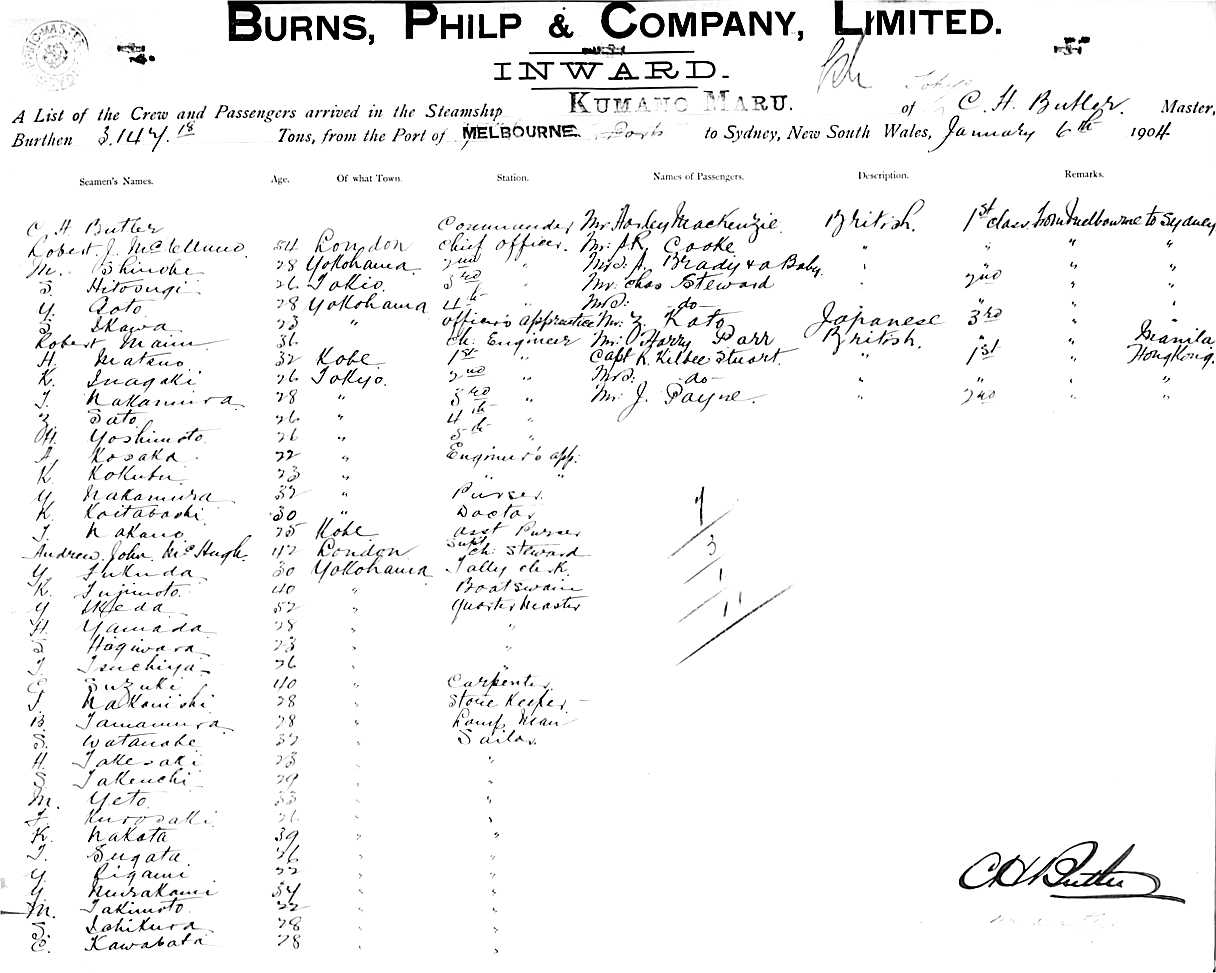 BURNS, PHILP & COMPANY, LIMITED.
INWARD.
A List of the Crew and Passengers arrived in the Steamship KUMANO MARU. of C. H. Butler. Master,
Burthen 3,147.18 Tons, from the Port of MELBOURNE. to Sydney, New South Wales, January 6th 1904
Seamen's Names. Age. Of what Town. Station. Names of Passengers. Description. Remarks.
C. H Butler Commander Mr Harley Mackenzie British. 1st class from Melbourne to Sydney
Robert J. 54 London chief officer. Mr. Cooke " " " "
M. Shinobe 28 Yokohama 2nd " Mrs. A. Brady & a Baby " " "
S. Hitosugi 26 Tokio 3rd " Mr. Chas Steward " 2nd " "
Y. Goto 28 Yokohama 4th " Mrs. do " " " "
S. Ikawa 23 " officer's apprentice Mr. Z. Kato Japanese 3rd "
Robert Mann 36 Ch. Engineer Mr. Harry Parr British. " " Manila
H. Matsuo 32 Kobe 1st " Capt R. Kilbee Stuart " 1st " Hongkong.
K. Inagaki 26 Tokyo. 2nd " Mrs. do " " " "
T. Nakamura 28 " 3rd " Mr. J. Payne " 2nd " "
Z. Sato 26 " 4th "
H. Yoshimoto 26 " 5th "
A. Kosaka 22 " Engineer's app.
K Kokubu 23 " " "
Y. Nakamura 32 " Purser
K. Koitabashi 30 " Doctor
T. Nakano 25 Kobe asst Purser
Andrew John McHugh. 42 London Supt Ch. Steward
Y. Fukuda 30 Yokohama Tally clk
K. Fujimoto 40 " Boatswain
Y Ikeda 52 " Quarter Master
H. Yamada 28 " "
S. Hagiwara 23 " "
T. Tsuchiya 26 " "
Suzuki 40 " Carpenter
T. Nakanishi 28 " Store Keeper
B. Tamamura 28 " Lamp Man
S. Watanabe 32 " Sailor
H. Takesaki 23 " "
S. Takenchi 29 " "
M. Yeto 33 " "
F. Kurosaki 26 " "
K. Nakata 39 " "
T. Sugata 26 " "
Y. Rigami 22 " "
Y. Murakami 54 " "
M. Takimoto 22 " "
S. Ichikura 28 " "
E. Kawabata 28 " "
7
3
1
11
C H Butler